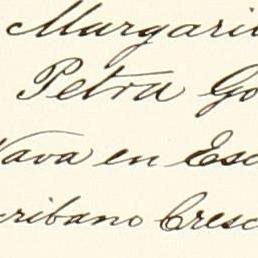 Margari
Petra Go
Nava en Esc
cribano Cresc